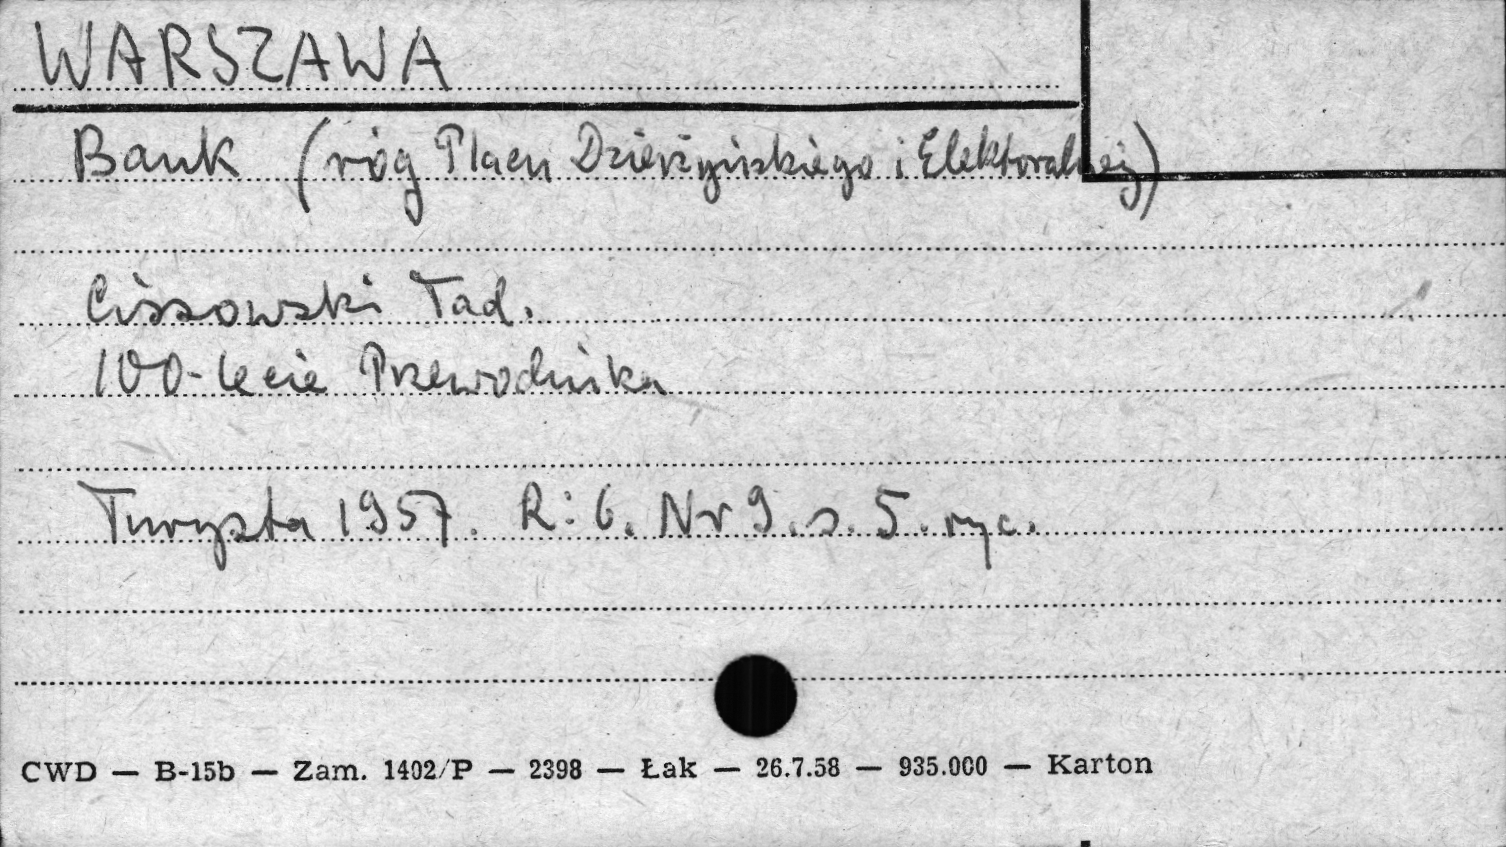 WARSZAWA
Bank (róg Placu Dzierżyńskiego i Elektoralnej)
Ciszowski Tad.
100-lecie Przewodnika
Turysta 1957. R: 6. Nr 9. s. 5. ryc.
CWD — B-15b — Zam. 1402/P — 2398 — Łak — 26.7.58 — 935.000 — Karton